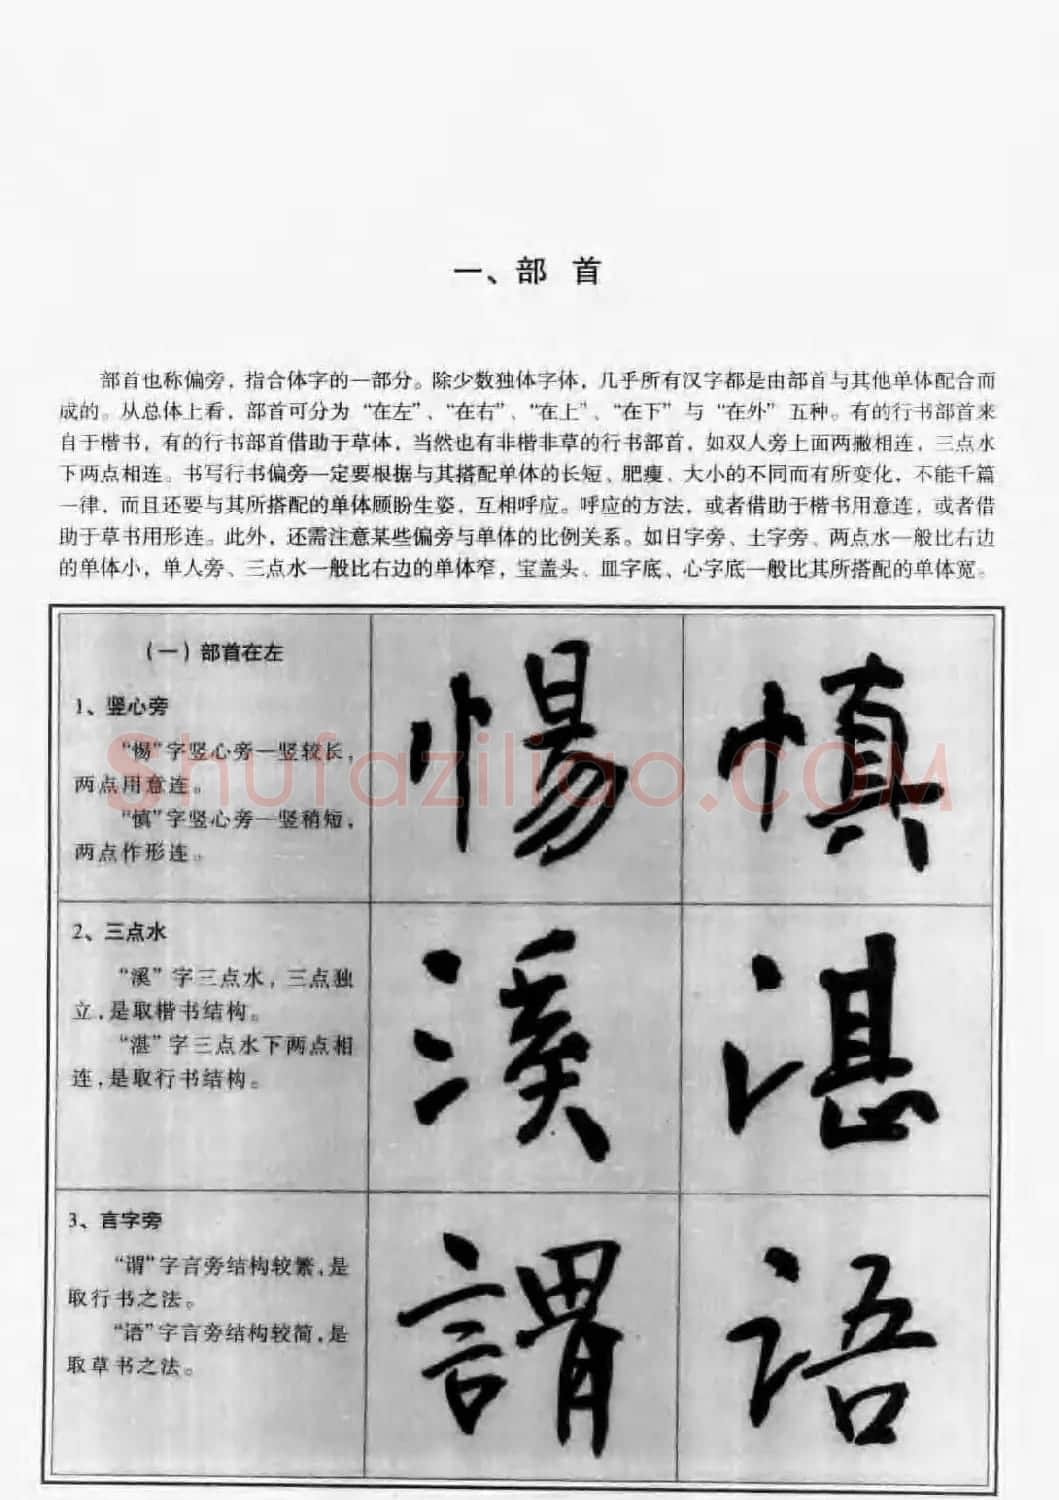 一、部 首
部首也称偏旁，指合体字的一部分。除少数独体字体，几乎所有汉字都是由部首与其他单体配合而
成的。从总体上看，部首可分为“在左”、“在右”、“在上”、“在下”与“在外”五种。有的行书部首来
自于楷书，有的行书部首借助于草体，当然也有非楷非草的行书部首，如双人旁上面两撇相连，三点水
下两点相连。书写行书偏旁一定要根据与其搭配单体的长短、肥瘦、大小的不同而有所变化，不能千篇
一律，而且还要与其所搭配的单体顾盼生姿，互相呼应。呼应的方法，或者借助于楷书用意连，或者借
助于草书用形连。此外，还需注意某些偏旁与单体的比例关系。如日字旁、土字旁、两点水一般比右边
的单体小，单人旁、三点水一般比右边的单体窄，宝盖头、皿字底、心字底一般比其所搭配的单体宽。
（一）部首在左
1、竖心旁
“惕”字竖心旁一竖较长，
两点用意连。
“慎”字竖心旁一竖稍短，
两点作形连。
惕 慎
2、三点水
“溪”字三点水，三点独
立，是取楷书结构。
“湛”字三点水下两点相
连，是取行书结构。
溪 湛
3、言字旁
“谓”字言旁结构较繁，是
取行书之法。
“语”字言旁结构较简，是
取草书之法。
謂 语
Shufaziliao.COM